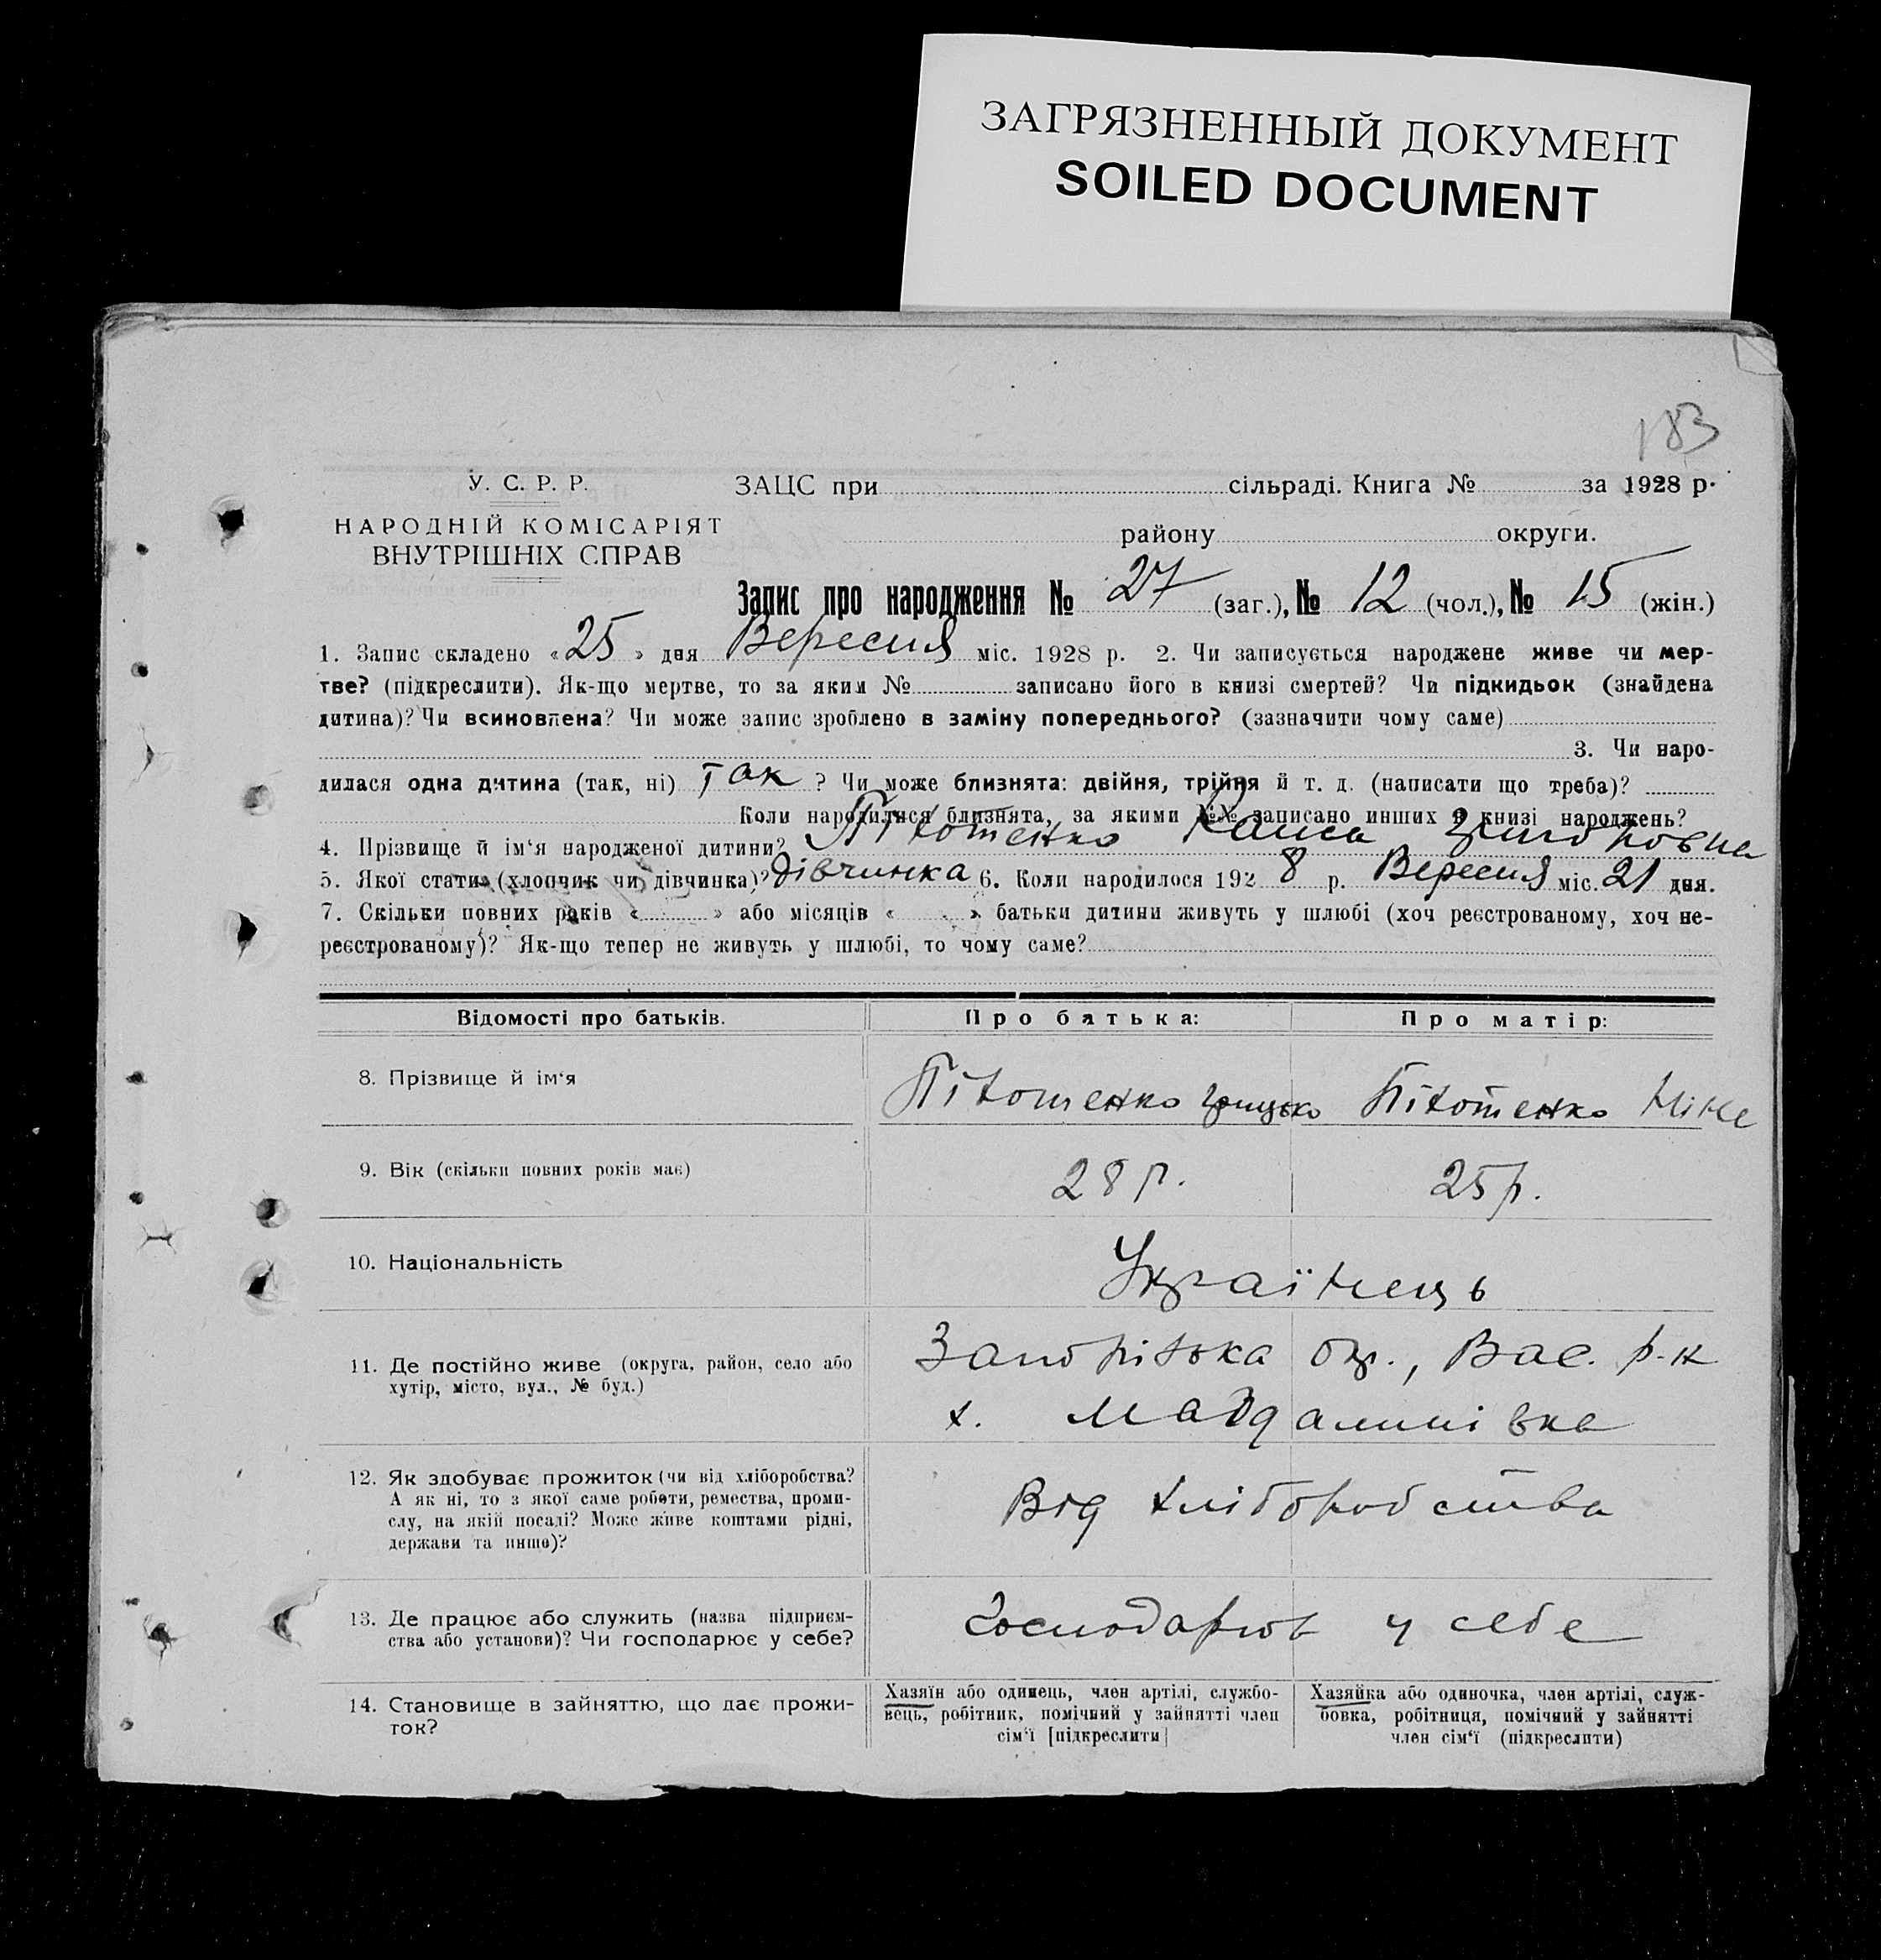 ЗАГРЯЗНЕННЫЙ ДОКУМЕНТ
SOILED DOCUMENT
183
У. С. Р. Р.
НАРОДНІЙ КОМІСАРІЯТ
ВНУТРІШНІХ СПРАВ
ЗАЦС при сільраді. Книга № за 1928 р.
району округи.
Запис про народження № 27 (заг.), № 12 (чол.), № 15 (жін.)
1. Запис складено « 25 » дня Вересня міс. 1928 р. 2. Чи записується народжене живе чи мер-
тве? (підкреслити). Як-що мертве, то за яким № записано його в книзі смертей? Чи підкидьок (знайдена
дитина)? Чи всиновлена? Чи може запис зроблено в заміну попереднього? (зазначити чому саме)
3. Чи наро-
дилася одна дитина (так, ні) так ? Чи може близнята: двійня, трійня й т. д. (написати що треба)?
Коли народилися близнята, за якими №№ записано инших в книзі народжень?
4. Прізвище й ім‘я народженої дитини? Піхотенко Раиса
5. Якої стати (хлопчик чи дівчинка)? дівчинка 6. Коли народилося 192 8 р. Вересня міс. 21 дня.
7. Скільки повних років « » або місяців « » батьки дитини живуть у шлюбі (хоч реєстрованому, хоч не-
реєстрованому)? Як-що тепер не живуть у шлюбі, то чому саме?
Відомості про батьків. Про батька: Про матір:
8. Прізвище й ім‘я Піхотенко Грицько Піхотенко
9. Вік (скільки повних років має) 28 р. 25 р.
10. Національність Українець
11. Де постійно живе (округа, район, село або
хутір, місто, вул., № буд.)
Запорізька окр., Вас. р-н
х. Магдалинівка
12. Як здобуває прожиток (чи від хліборобства?
А як ні, то з якої саме роботи, ремества, проми-
слу, на якій посаді? Може живе коштами рідні,
держави та инше)?
Від хліборобства
13. Де працює або служить (назва підприєм-
ства або установи)? Чи господарює у себе?
Господарює у себе
14. Становище в зайняттю, що дає прожи-
ток?
Хазяїн або одинець, член артілі, службо-
вець, робітник, помічний у зайнятті член
сім‘ї [підкреслити]
Хазяйка або одиночка, член артілі, служ-
бовка, робітниця, помічний у зайнятті
член сім‘ї (підкреслити)